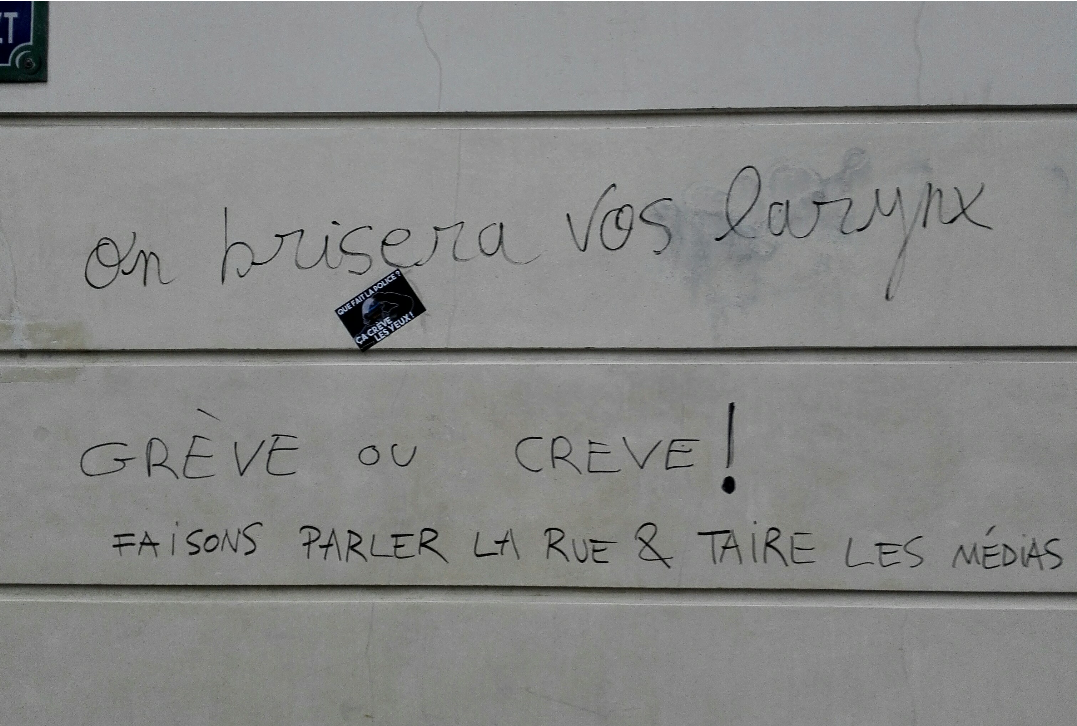 ET
on brisera vos larynx
QUE FAIT LA POLICE ?
ÇA CRÈVE
LES YEUX !
GRÈVE OU CREVE !
FAISONS PARLER LA RUE & TAIRE LES MÉDIAS